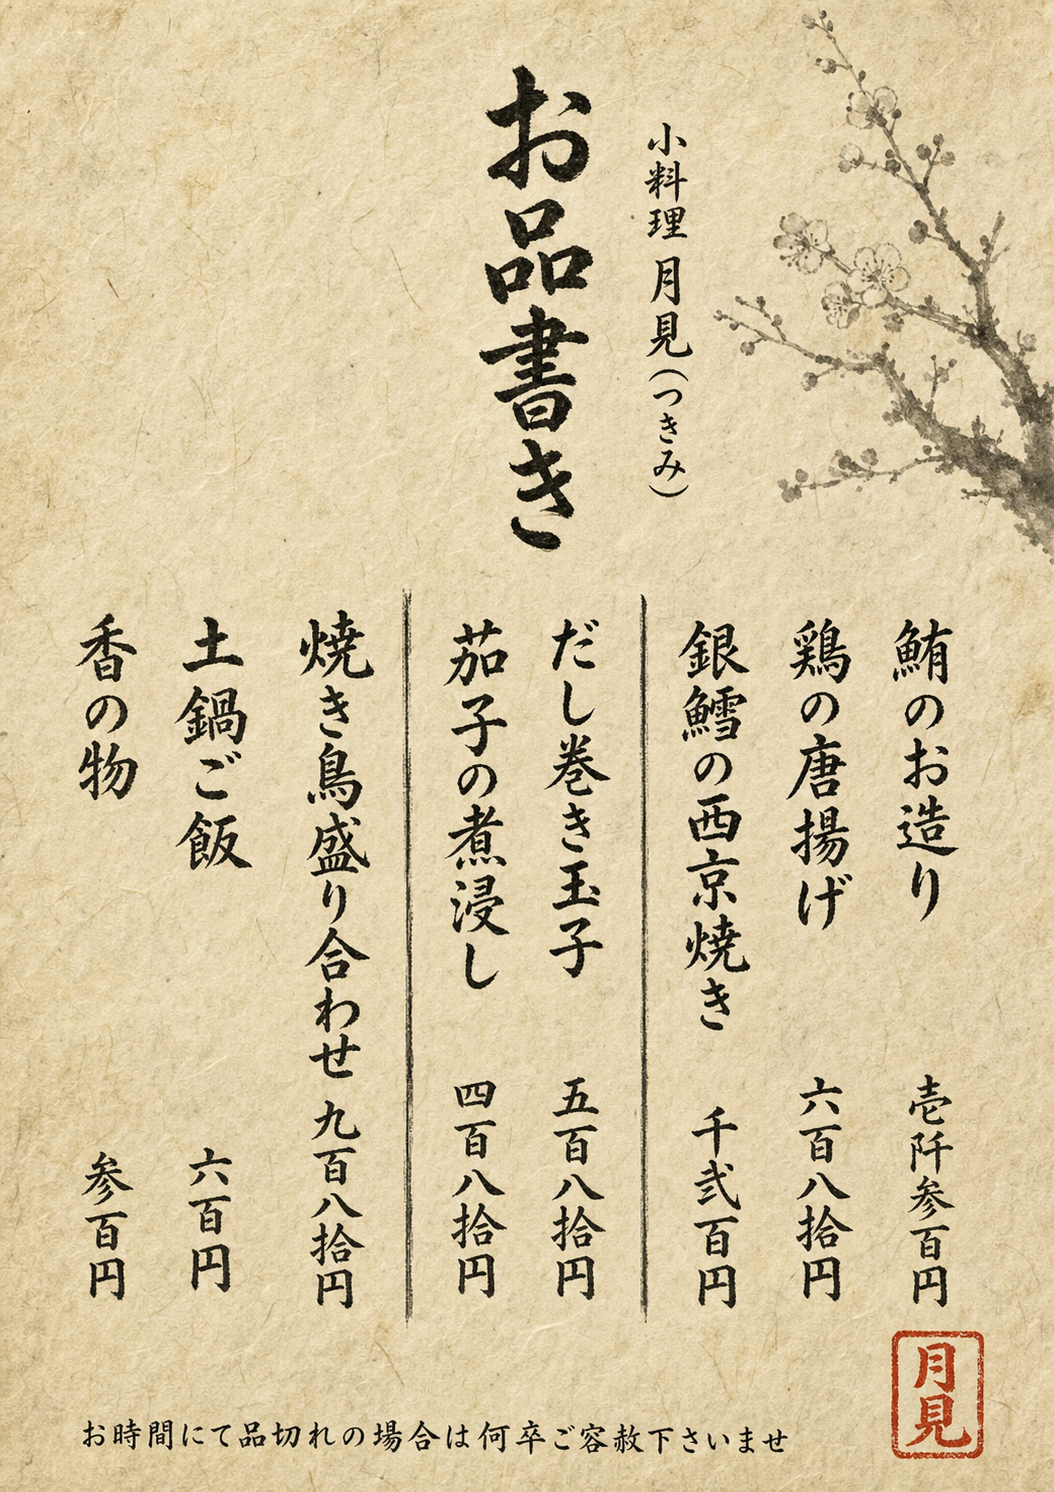 小料理 月見(つきみ)
お品書き
鮪のお造り 壱阡参百円
鶏の唐揚げ 六百八拾円
銀鱈の西京焼き 千弐百円
だし巻き玉子 五百八拾円
茄子の煮浸し 四百八拾円
焼き鳥盛り合わせ 九百八拾円
土鍋ご飯 六百円
香の物 参百円
お時間にて品切れの場合は何卒ご容赦下さいませ
月見